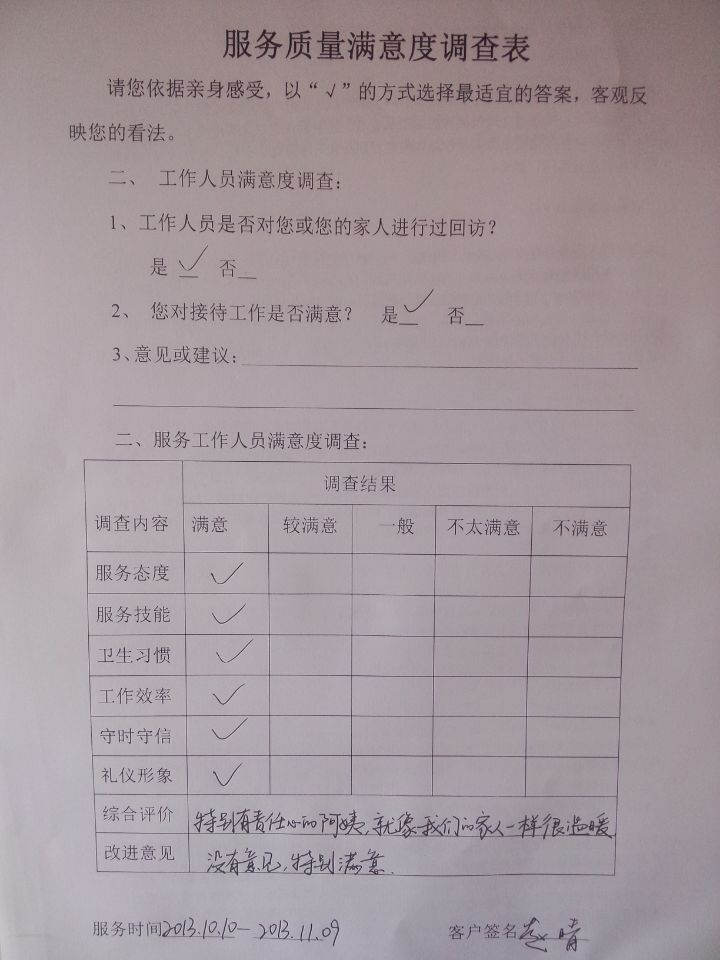 服务质量满意度调查表
请您依据亲身感受，以“√”的方式选择最适宜的答案，客观反
映您的看法。
二、 工作人员满意度调查：
1、工作人员是否对您或您的家人进行过回访？
是 √ 否__
2、 您对接待工作是否满意？ 是√ 否__
3、意见或建议：
二、服务工作人员满意度调查：
调查内容 调查结果
满意 较满意 一般 不太满意 不满意
服务态度 √
服务技能 √
卫生习惯 √
工作效率 √
守时守信 √
礼仪形象 √
综合评价 特别有责任心的阿姨，就像我们的家人一样很温暖
改进意见 没有意见，特别满意.
服务时间2013.10.10—2013.11.09 客户签名赵晴